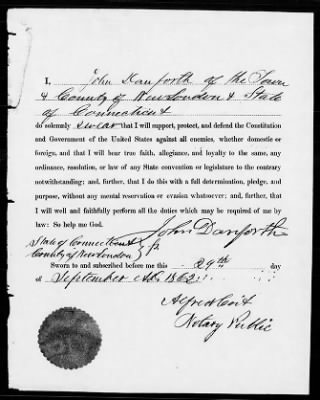 I, John Danforth of the Town
& County of New London & State
of Connecticut
do solemnly swear that I will support, protect, and defend the Constitution
and Government of the United States against all enemies, whether domestic
or foreign, and that I will bear true faith, allegiance, and loyalty to the same, any
ordinance, resolution, or law of any State convention or legislature to the contrary
notwithstanding; and, further, that I do this with a full determination, pledge, and
purpose, without any mental reservation or evasion whatsoever; and, further, that
I will well and faithfully perform all the duties which may be required of me by
law: So help me God.
John Danforth
State of Connecticut
County of New London } ss
Sworn to and subscribed before me this 29th day
of September AD. 1862
Alfred Coit
Notary Public